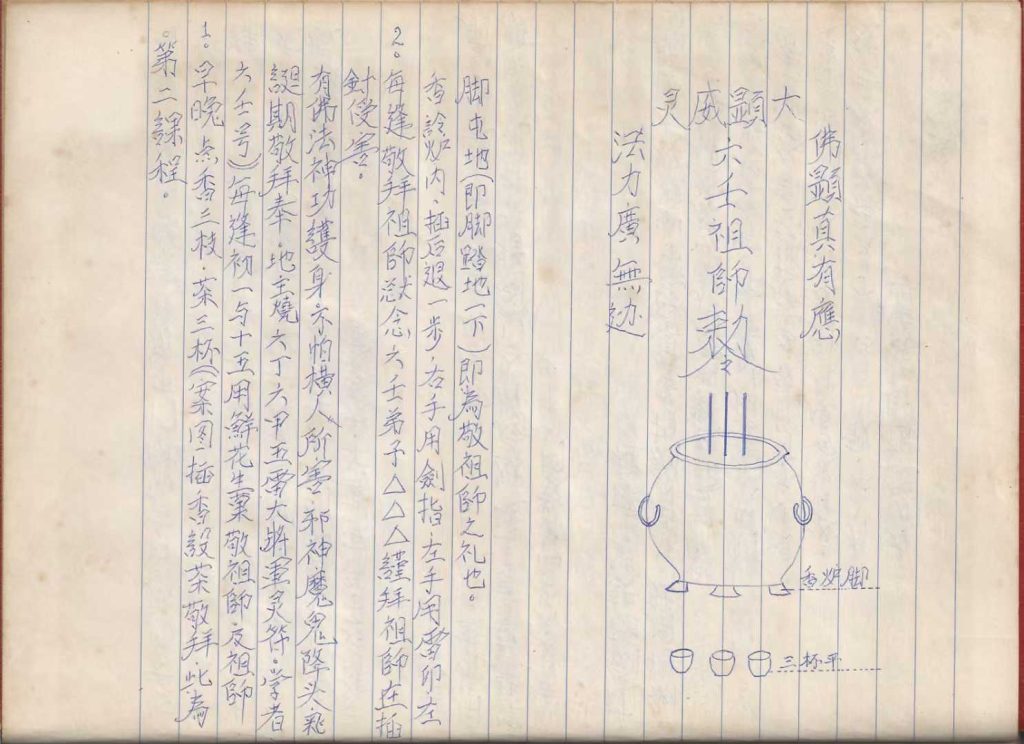 第二課程。
1。早晚点香三枝.茶三杯(案图插香設茶敬拜.此為
六壬号)每逢初一与十五用鮮花生菓敬祖師.及祖師
誕期敬拜奉.地主燒六丁六甲五雷大將軍灵符。学者
有佛法神功護身不怕橫人所害邪神魔鬼降头.飛
針受害。
2。每逢敬拜祖師默念六壬弟子△△△謹拜祖師在插
香詅炉内、插后退一步,右手用劍指左手用雷印左
脚屯地(即脚踏地一下)即為敬祖師之礼也。
大顯威灵
佛顯真有應
六壬祖師敕令
法力廣無边
香炉脚
三杯平